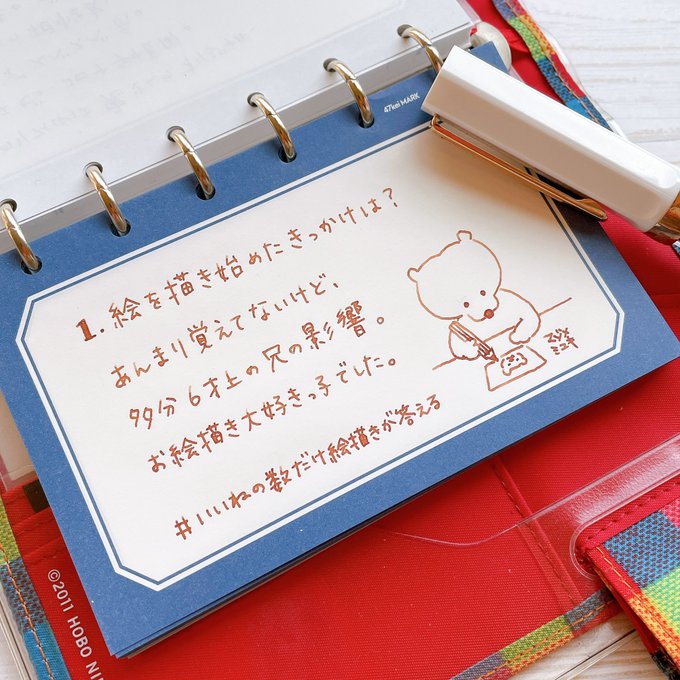 47kei MARK
1. 絵を描き始めたきっかけは?
あんまり覚えてないけど、
多分6才上の兄の影響。
お絵描き大好きっ子でした。
#いいねの数だけ絵描きが答える
©2011 HOBO NI